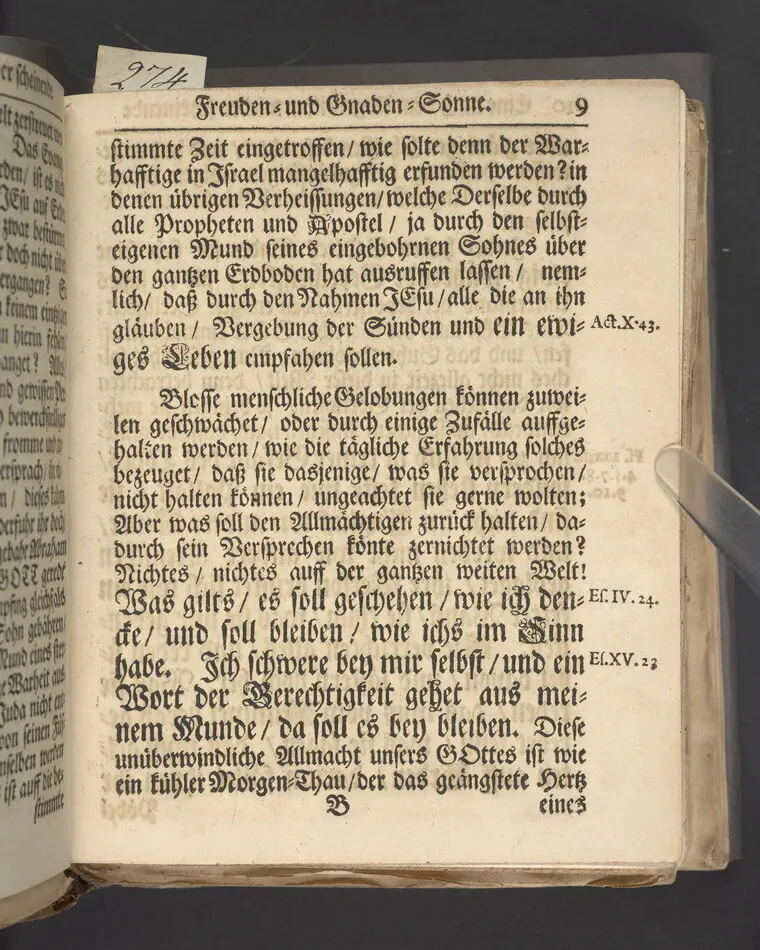 274
Freuden- und Gnaden-Sonne. 9
stimmte Zeit eingetroffen/ wie solte denn der War-
hafftige in Israel mangelhafftig erfunden werden? in
denen übrigen Verheissungen/ welche Derselbe durch
alle Propheten und Apostel/ ja durch den selbst-
eigenen Mund seines eingebohrnen Sohnes über
den gantzen Erdboden hat ausruffen lassen/ nem-
lich/ daß durch den Nahmen JEsu/ alle die an ihn
gläuben/ Vergebung der Sünden und ein ewi- Act.X.43.
ges Leben empfahen sollen.
Blosse menschliche Gelobungen können zuwei-
len geschwächet/ oder durch einige Zufälle auffge-
halten werden/ wie die tägliche Erfahrung solches
bezeuget/ daß sie dasjenige/ was sie versprochen/
nicht halten können/ ungeachtet sie gerne wolten;
Aber was soll den Allmächtigen zurück halten/ da-
durch sein Versprechen könte zernichtet werden?
Nichtes/ nichtes auff der gantzen weiten Welt!
Was gilts/ es soll geschehen/ wie ich den- Es.IV.24.
cke/ und soll bleiben/ wie ichs im Sinn
habe. Ich schwere bey mir selbst/ und ein Es.XV.23
Wort der Gerechtigkeit gehet aus mei-
nem Munde/ da soll es bey bleiben. Diese
unüberwindliche Allmacht unsers GOttes ist wie
ein kühler Morgen-Thau/ der das geängstete Hertz
B eines